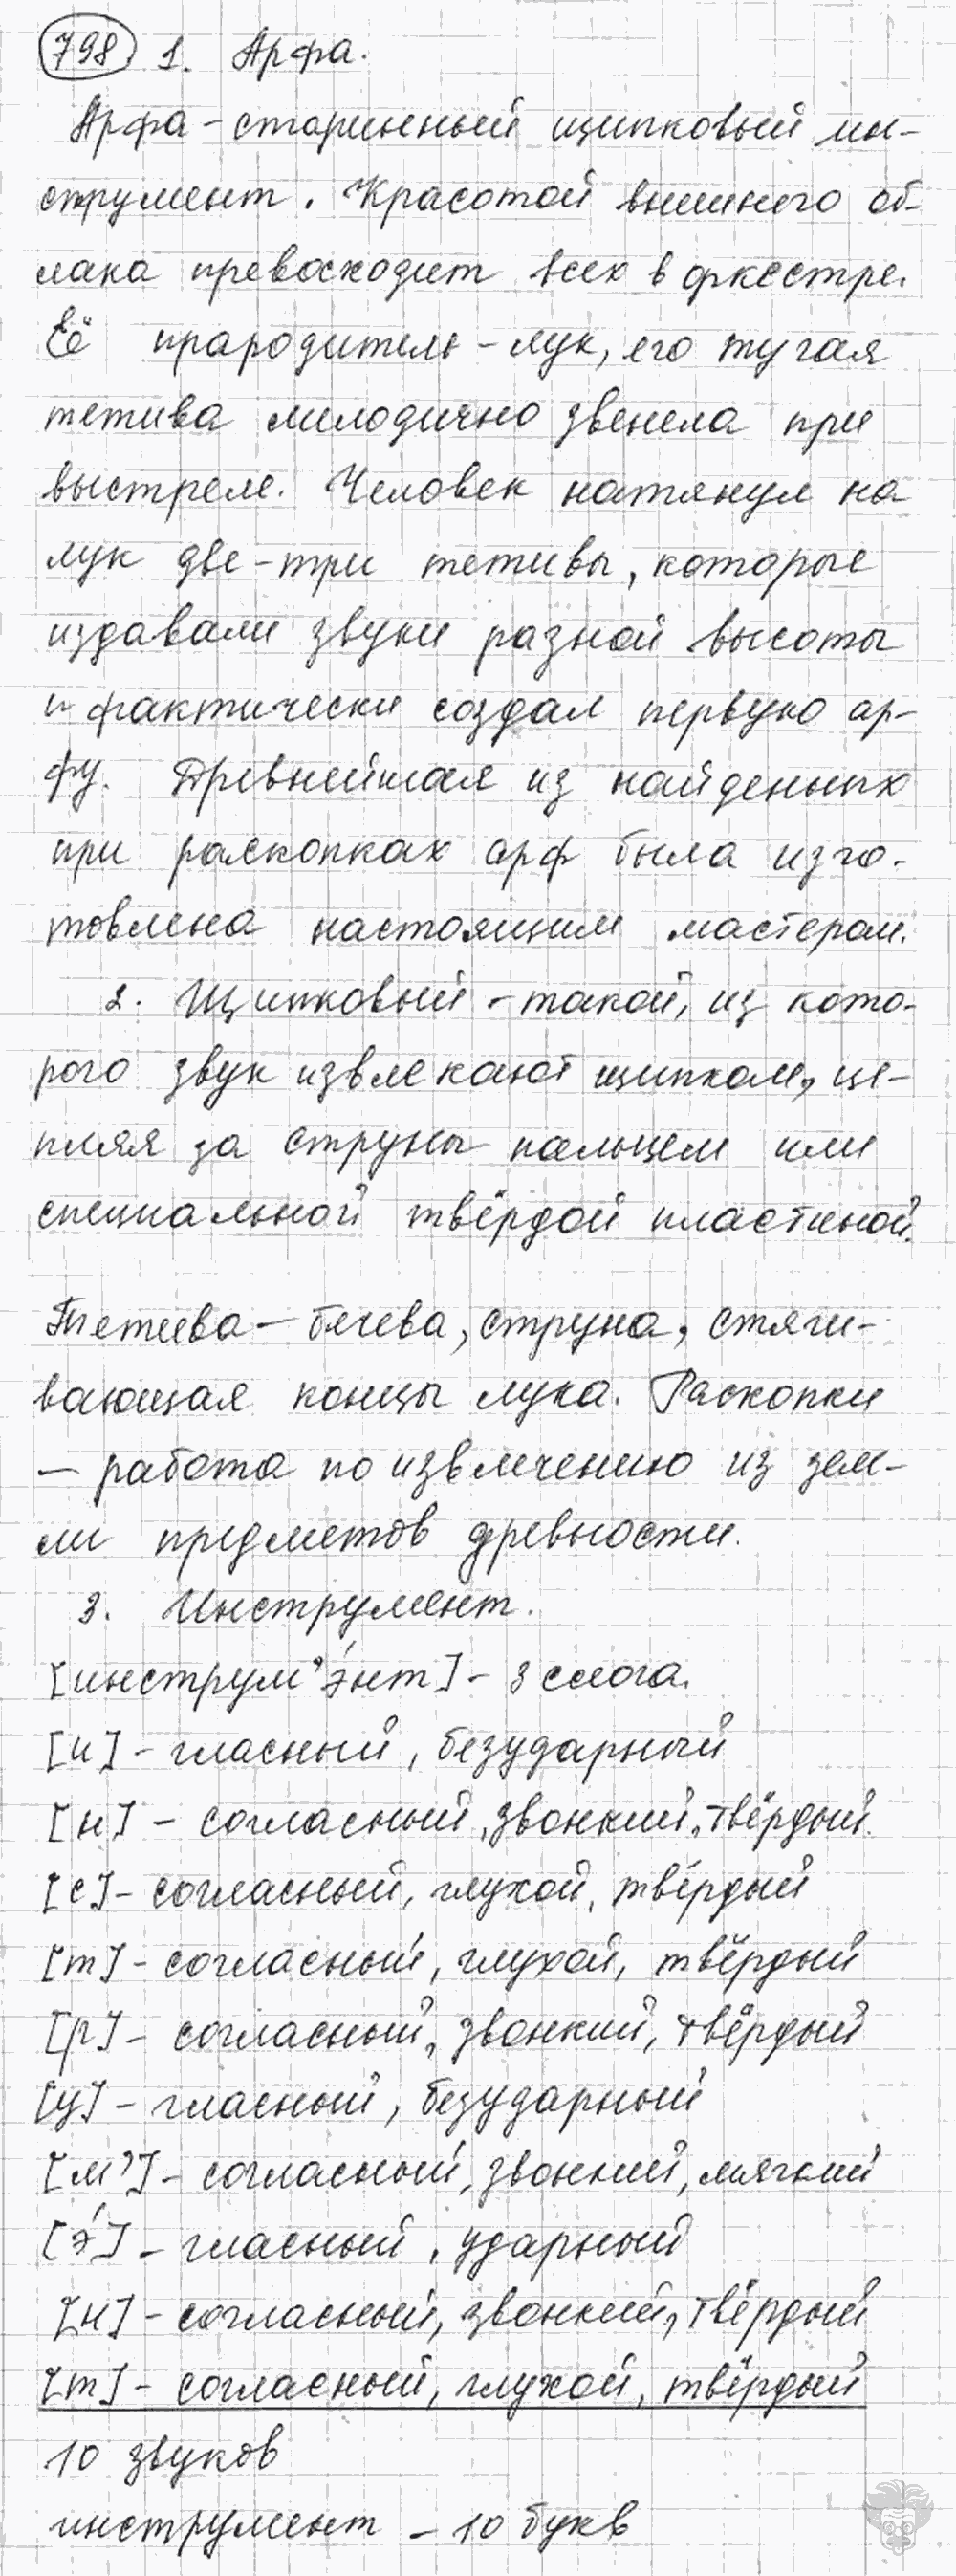 798 1. Арфа.
Арфа - старинный щипковый ин-
струмент. Красотой внешнего об-
лика превосходит всех в оркестре.
Её прародитель - лук, его тугая
тетива мелодично звенела при
выстреле. Человек натянул на
лук две-три тетивы, которые
издавали звуки разной высоты
и фактически создал первую ар-
фу. Древнейшая из найденных
при раскопках арф была изго-
товлена настоящим мастером.
2. Щипковый - такой, из кото-
рого звук извлекают щипком, це-
пляя за струны пальцем или
специальной твёрдой пластиной.
Тетива - бечева, струна, стяги-
вающая концы лука. Раскопки
- работа по извлечению из зем-
ли предметов древности.
3. Инструмент.
[инструм'э́нт] - 3 слога.
[и] - гласный, безударный
[н] - согласный, звонкий, твёрдый.
[с] - согласный, глухой, твёрдый
[т] - согласный, глухой, твёрдый
[р] - согласный, звонкий, твёрдый
[у] - гласный, безударный
[м'] - согласный, звонкий, мягкий
[э́] - гласный, ударный
[н] - согласный, звонкий, твёрдый
[т] - согласный, глухой, твёрдый
10 звуков
инструмент - 10 букв